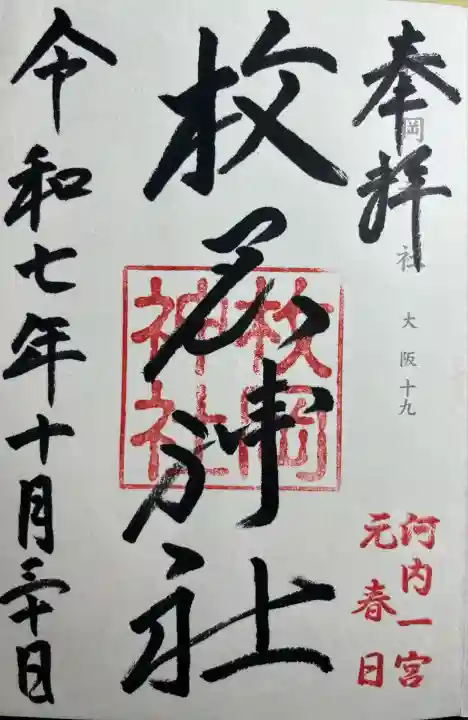 奉拝
岡社 大阪十九
河内一宮
元春日
枚岡神社
枚岡
神社
令和七年十月三十日